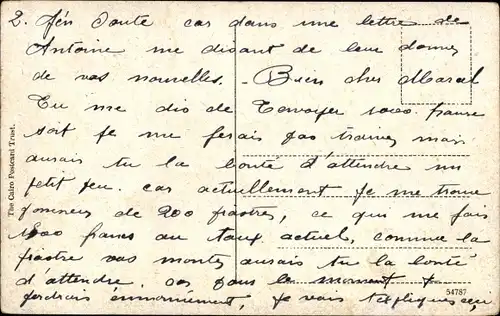 2. j'en doute car dans une lettre de
Antoine me disant de leur donner
de vos nouvelles. - Bien cher Marcel
Tu me dis de t'envoyer 1000 francs
soit je me ferais pas trainer mais
aurais tu la bonté d'attendre un
petit peu. car actuellement je me trouve
de 200 piastres, ce qui me fais
francs au taux actuel, comme la
piastre vas monter aurais tu la bonté
d'attendre. car pour le moment je
perdrais énnormément, je vais t'expliquer
The Cairo Postcard Trust.
54787